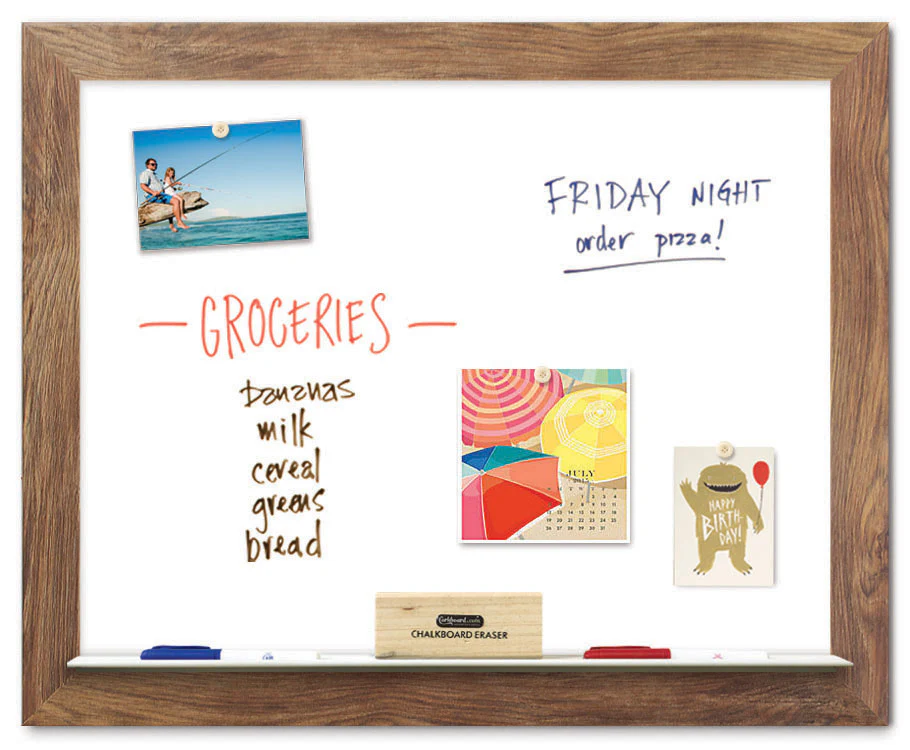 FRIDAY NIGHT
order pizza!
— GROCERIES —
bananas
milk
cereal
greens
bread
JULY
2015
HAPPY
BIRTH
DAY!
Corkboard.com
CHALKBOARD ERASER